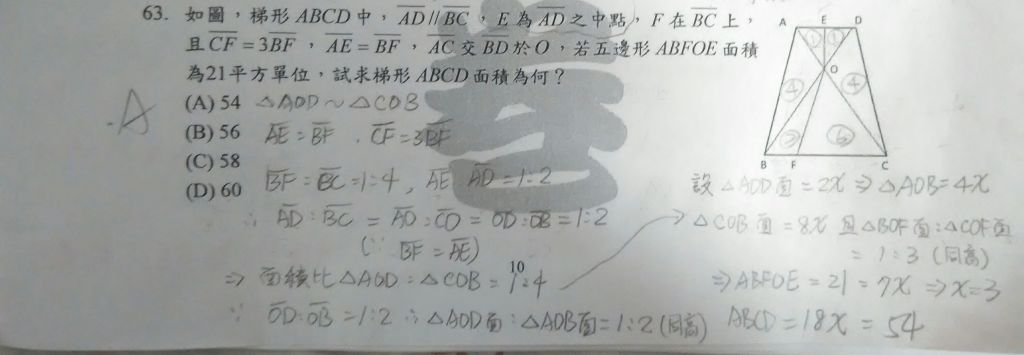 63. 如圖，梯形 ABCD 中，AD // BC，E 為 AD 之中點，F 在 BC 上，
且 CF = 3BF，AE = BF，AC 交 BD 於 O，若五邊形 ABFOE 面積
為21平方單位，試求梯形 ABCD 面積為何？
(A) 54
(B) 56
(C) 58
(D) 60
A
△AOD ~ △COB
AE = BF . CF = 3BF
BF : BC = 1:4 , AE AD = 1:2
∴ AD : BC = AO : CO = OD : OB = 1:2
(∵ BF = AE)
⇒ 面積比 △AOD : △COB = 1:4
10
∵ OD : OB = 1:2 ∴ △AOD面 : △AOB面 = 1:2 (同高)
A E D
① ①
O
④ ④
②
⑥
B F C
設 △AOD面 = 2x ⇒ △AOB = 4x
→ △COB面 = 8x 且 △BOF面 : △COF面
= 1:3 (同高)
⇒ ABFOE = 21 = 7x ⇒ x = 3
ABCD = 18x = 54